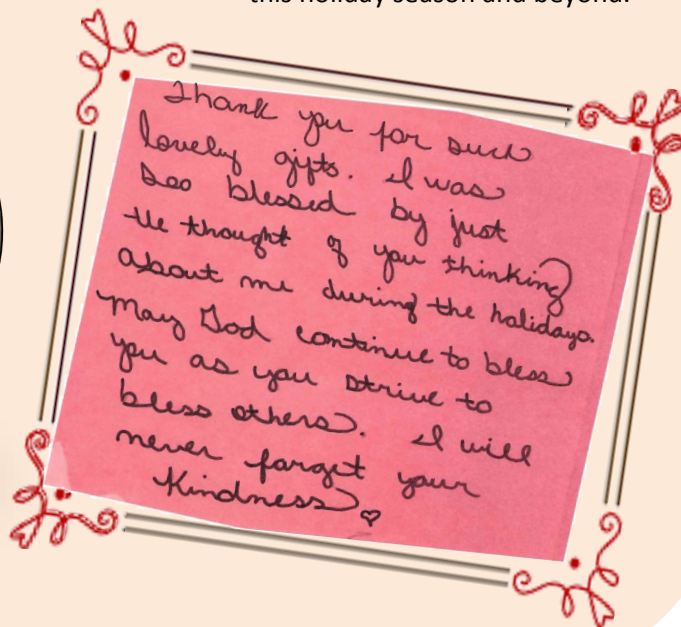 this holiday season and beyond.
Thank you for such
lovely gifts. I was
soo blessed by just
the thought of you thinking
about me during the holidays.
May God continue to bless
you as you strive to
bless others. I will
never forget your
Kindness ♡